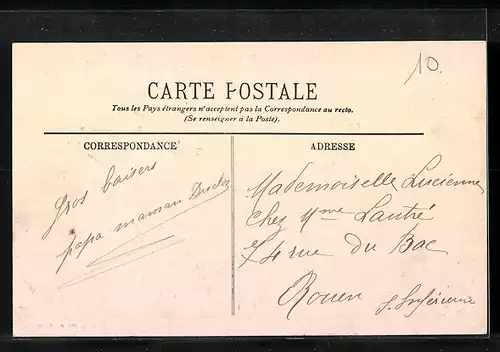 10.
CARTE POSTALE
Tous les Pays étrangers n'acceptent pas la Correspondance au recto.
(Se renseigner à la Poste).
CORRESPONDANCE
Gros baisers
papa maman
ADRESSE
Mademoiselle Lucienne
chez Mme Lautré
74 rue du Bac
Rouen
S. Inférieure